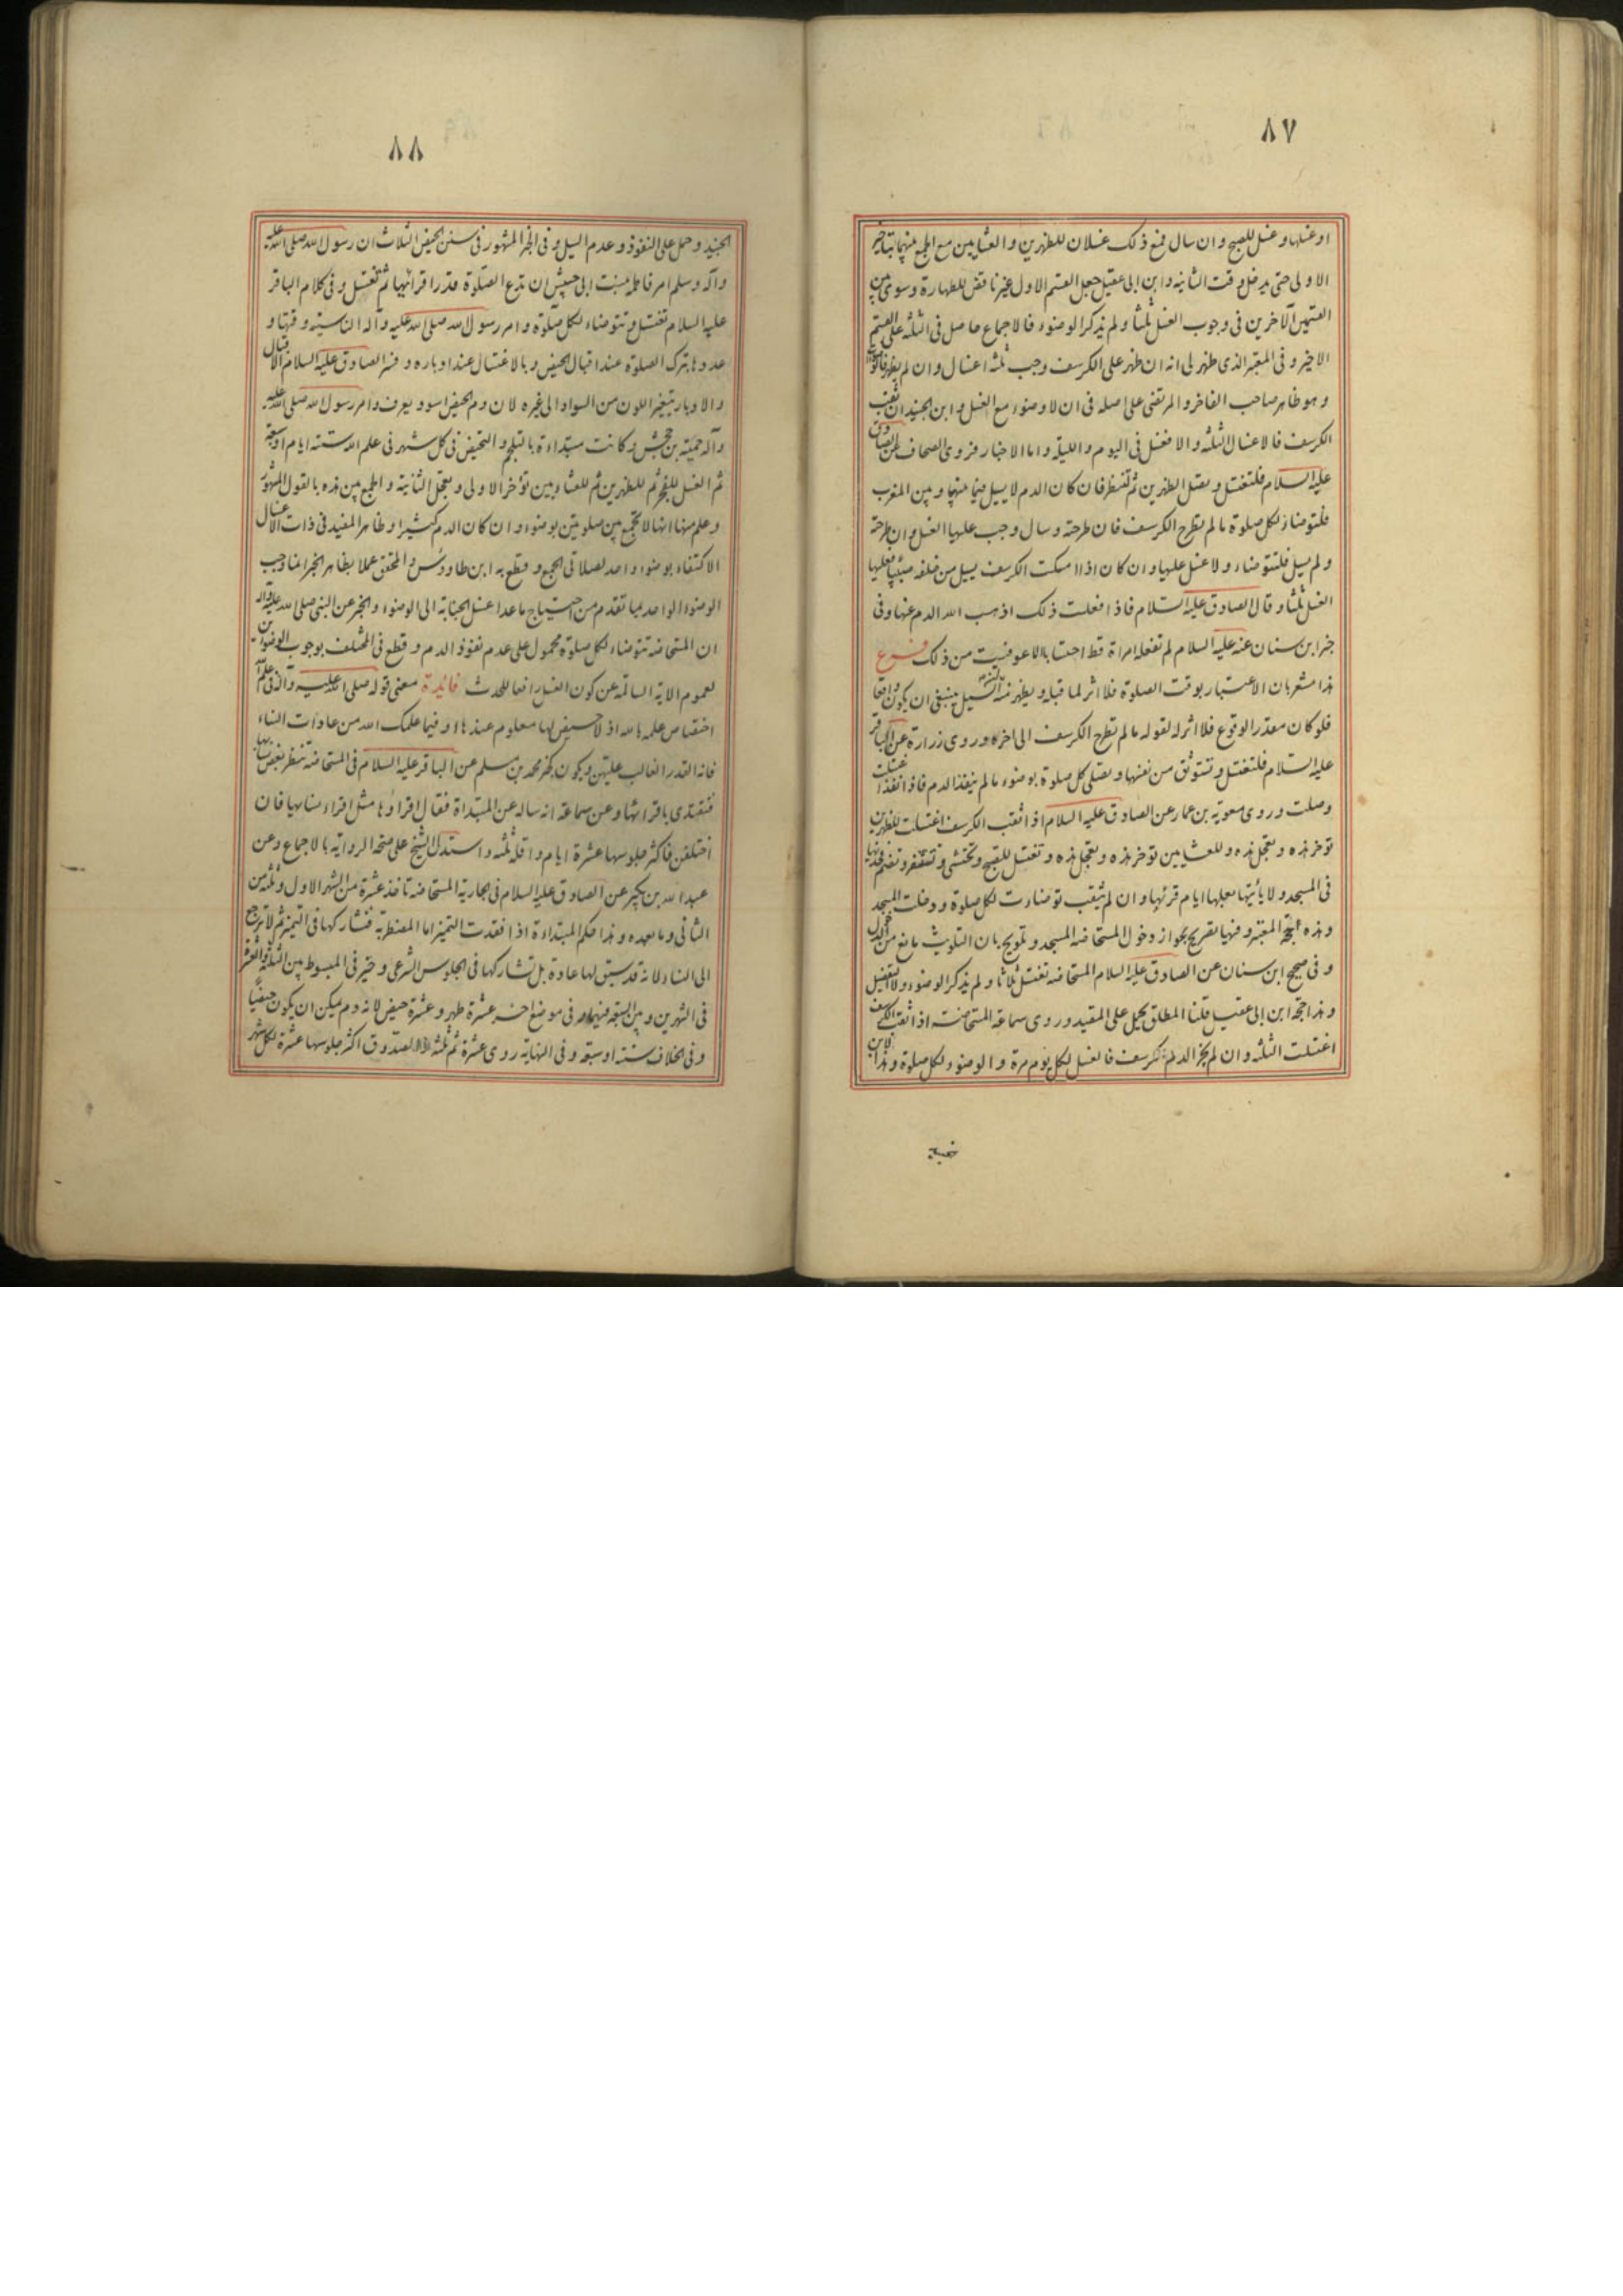 ٨٧
او غسلها وغسل للصبح وان سال فمع ذلك غسلان للظهرين والعشايين مع الجمع بينهما بتاخير
الاولى حتى يدخل وقت الثانية وابن ابى عقيل جعل القسم الاول غير ناقض للطهارة وسوى بين
القسمين الآخرين فى وجوب الغسل ثلثا ولم يذكر الوضوء فالاجماع حاصل فى الثلثه على القسم
الاخير وفى المعتبر الذى ظهر لى انه ان ظهر على الكرسف وجب ثلثه اغسال وان لم يظهر فالوضوء
وهو ظاهر صاحب الفاخر والمرتضى على اصله فى ان لا وضوء مع الغسل وابن الجنيد ان ثقب
الكرسف فالاغسال الثلثه والا فغسل فى اليوم والليلة واما الاخبار فروى الصحاف عن الصادق
عليه السلام فلتغتسل وتصل الظهرين ثم لتنظر فان كان الدم لا يسيل فيما بينها وبين المغرب
فلتوضأ لكل صلوة ما لم تطرح الكرسف فان طرحته وسال وجب عليها الغسل وان طرحته
ولم يسل فلتتوضاء ولا غسل عليها وان كان اذا امسكت الكرسف يسيل من خلفه صبيبا فعليها
الغسل ثلثا وقال الصادق عليه السلام فاذا فعلت ذلك اذهب الله الدم عنها وفى
خبر ابن سنان عنه عليه السلام لم تفعله امراة قط احتسابا الا عوفيت من ذلك فرع
هذا مشعر بان الاعتبار بوقت الصلوة فلا اثر لما قبله ويظهر منه ينبغى ان يكون واقعا
فلو كان مقدر الوقوع فلا اثر له لقوله ما لم تطرح الكرسف الى اخره وروى زرارة عن الباقر
عليه السلام فلتغتسل وتستوثق من نفسها وتصلى كل صلوة بوضوء ما لم ينفذ الدم فاذا نفذ اغتسلت
وصلت وروى معوية بن عمار عن الصادق عليه السلام اذا ثقب الكرسف اغتسلت للظهرين
توخر هذه وتعجل هذه وللعشايين توخر هذه وتعجل هذه وتغتسل للصبح وتحتشى وتستثفر وتضم فخذيها
فى المسجد ولا يأتيها بعلها ايام قرئها وان لم يثقب توضات لكل صلوة ودخلت المسجد
وهذه حجة المعتبر وفيها تصريح بجواز دخول المستحاضه المسجد وتلويح بان التلويث مانع من الدخول
وفى صحيح ابن سنان عن الصادق عليه السلام المستحاضه تغتسل ثلاثا ولم يذكر الوضوء ولا التفصيل
وهذا حجة ابن ابى عقيل قلنا المطلق يحمل على المقيد وروى سماعة المستحاضة اذا ثقب الكرسف
اغتسلت الثلثه وان لم يجز الدم الكرسف فالغسل لكل يوم مرة والوضوء لكل صلوة وهذا لابن
٨٨
الجنيد وحمل على النفوذ وعدم السيل وفى الخبر المشهور فى سنن الحيض الثلاث ان رسول الله صلى الله عليه
وآله وسلم امر فاطمة بنت ابى حبيش ان تدع الصلوة قدر اقرائها ثم تغتسل وفى كلام الباقر
عليه السلام تغتسل وتتوضاء لكل صلوة وامر رسول الله صلى الله عليه وآله الناسية وقتها و
عددها بترك الصلوة عند اقبال الحيض وبالاغتسال عند ادباره وفسر الصادق عليه السلام الاقبال
والادبار بتغير اللون من السواد الى غيره لان دم الحيض اسود يعرف وامر رسول الله صلى الله عليه
وآله حمنة بن جحش وكانت مبتداءة بالتلجم والتحيض فى كل شهر فى علم الله ستة ايام او سبعة
ثم الغسل للفجر ثم للظهرين ثم للعشاوين تؤخر الاولى وتعجل الثانية والجمع بين هذه بالقول المشهور
وعلم منها انها لا تجمع بين صلوتين بوضوء وان كان الدم كثيرا وظاهر المفيد فى ذات الاغسال
الاكتفاء بوضوء واحد لصلاتى الجمع وقطع به ابن طاووس والمحقق عملا بظاهر الخبر لنا وجب
الوضوء الواحد لما تقدم من احتياج ما عدا غسل الجنابة الى الوضوء والخبر عن النبى صلى الله عليه وآله
ان المستحاضه تتوضاء لكل صلوة محمول على عدم نفوذ الدم وقطع فى المختلف بوجوب الوضوءين
لعموم الاية السالمة عن كون الغسل رافعا للحدث فائدة معنى قوله صلى الله عليه وآله فى علم الله
اختصاص علمه بالله اذ لا حيض لها معلوم عندها او فيما علمك الله من عادات النساء
فانه القدر الغالب عليهن ويكون كخبر محمد بن مسلم عن الباقر عليه السلام فى المستحاضة تنظر بعض نسائها
فتقتدى باقرائها وعن سماعة انه ساله عن المبتداة فقال اقراؤها مثل اقراء نسايها فان
اختلفن فاكثر جلوسها عشرة ايام واقله ثلثه واستدل الشيخ على صحة الرواية بالاجماع وعن
عبد الله بن بكير عن الصادق عليه السلام فى الجارية المستحاضه تاخذ عشرة من الشهر الاول وثلثه من
الثانى وما بعده وهذا حكم المبتداءة اذا فقدت التميز اما المضطربة فتشاركها فى التميز ثم لا ترجع
الى النساء لانه قد سبق لها عادة بل تشاركها فى الجلوس الشرعى وخير فى المبسوط بين الثلثه والعشرة
فى الشهرين وبين السبعة فيهما وفى موضع اخر عشرة طهر وعشرة حيض لانه دم يمكن ان يكون حيضا
وفى الخلاف ستة او سبعة وفى النهاية روى عشرة ثم ثلثه الصدوق اكثر جلوسها عشرة لكل شهر